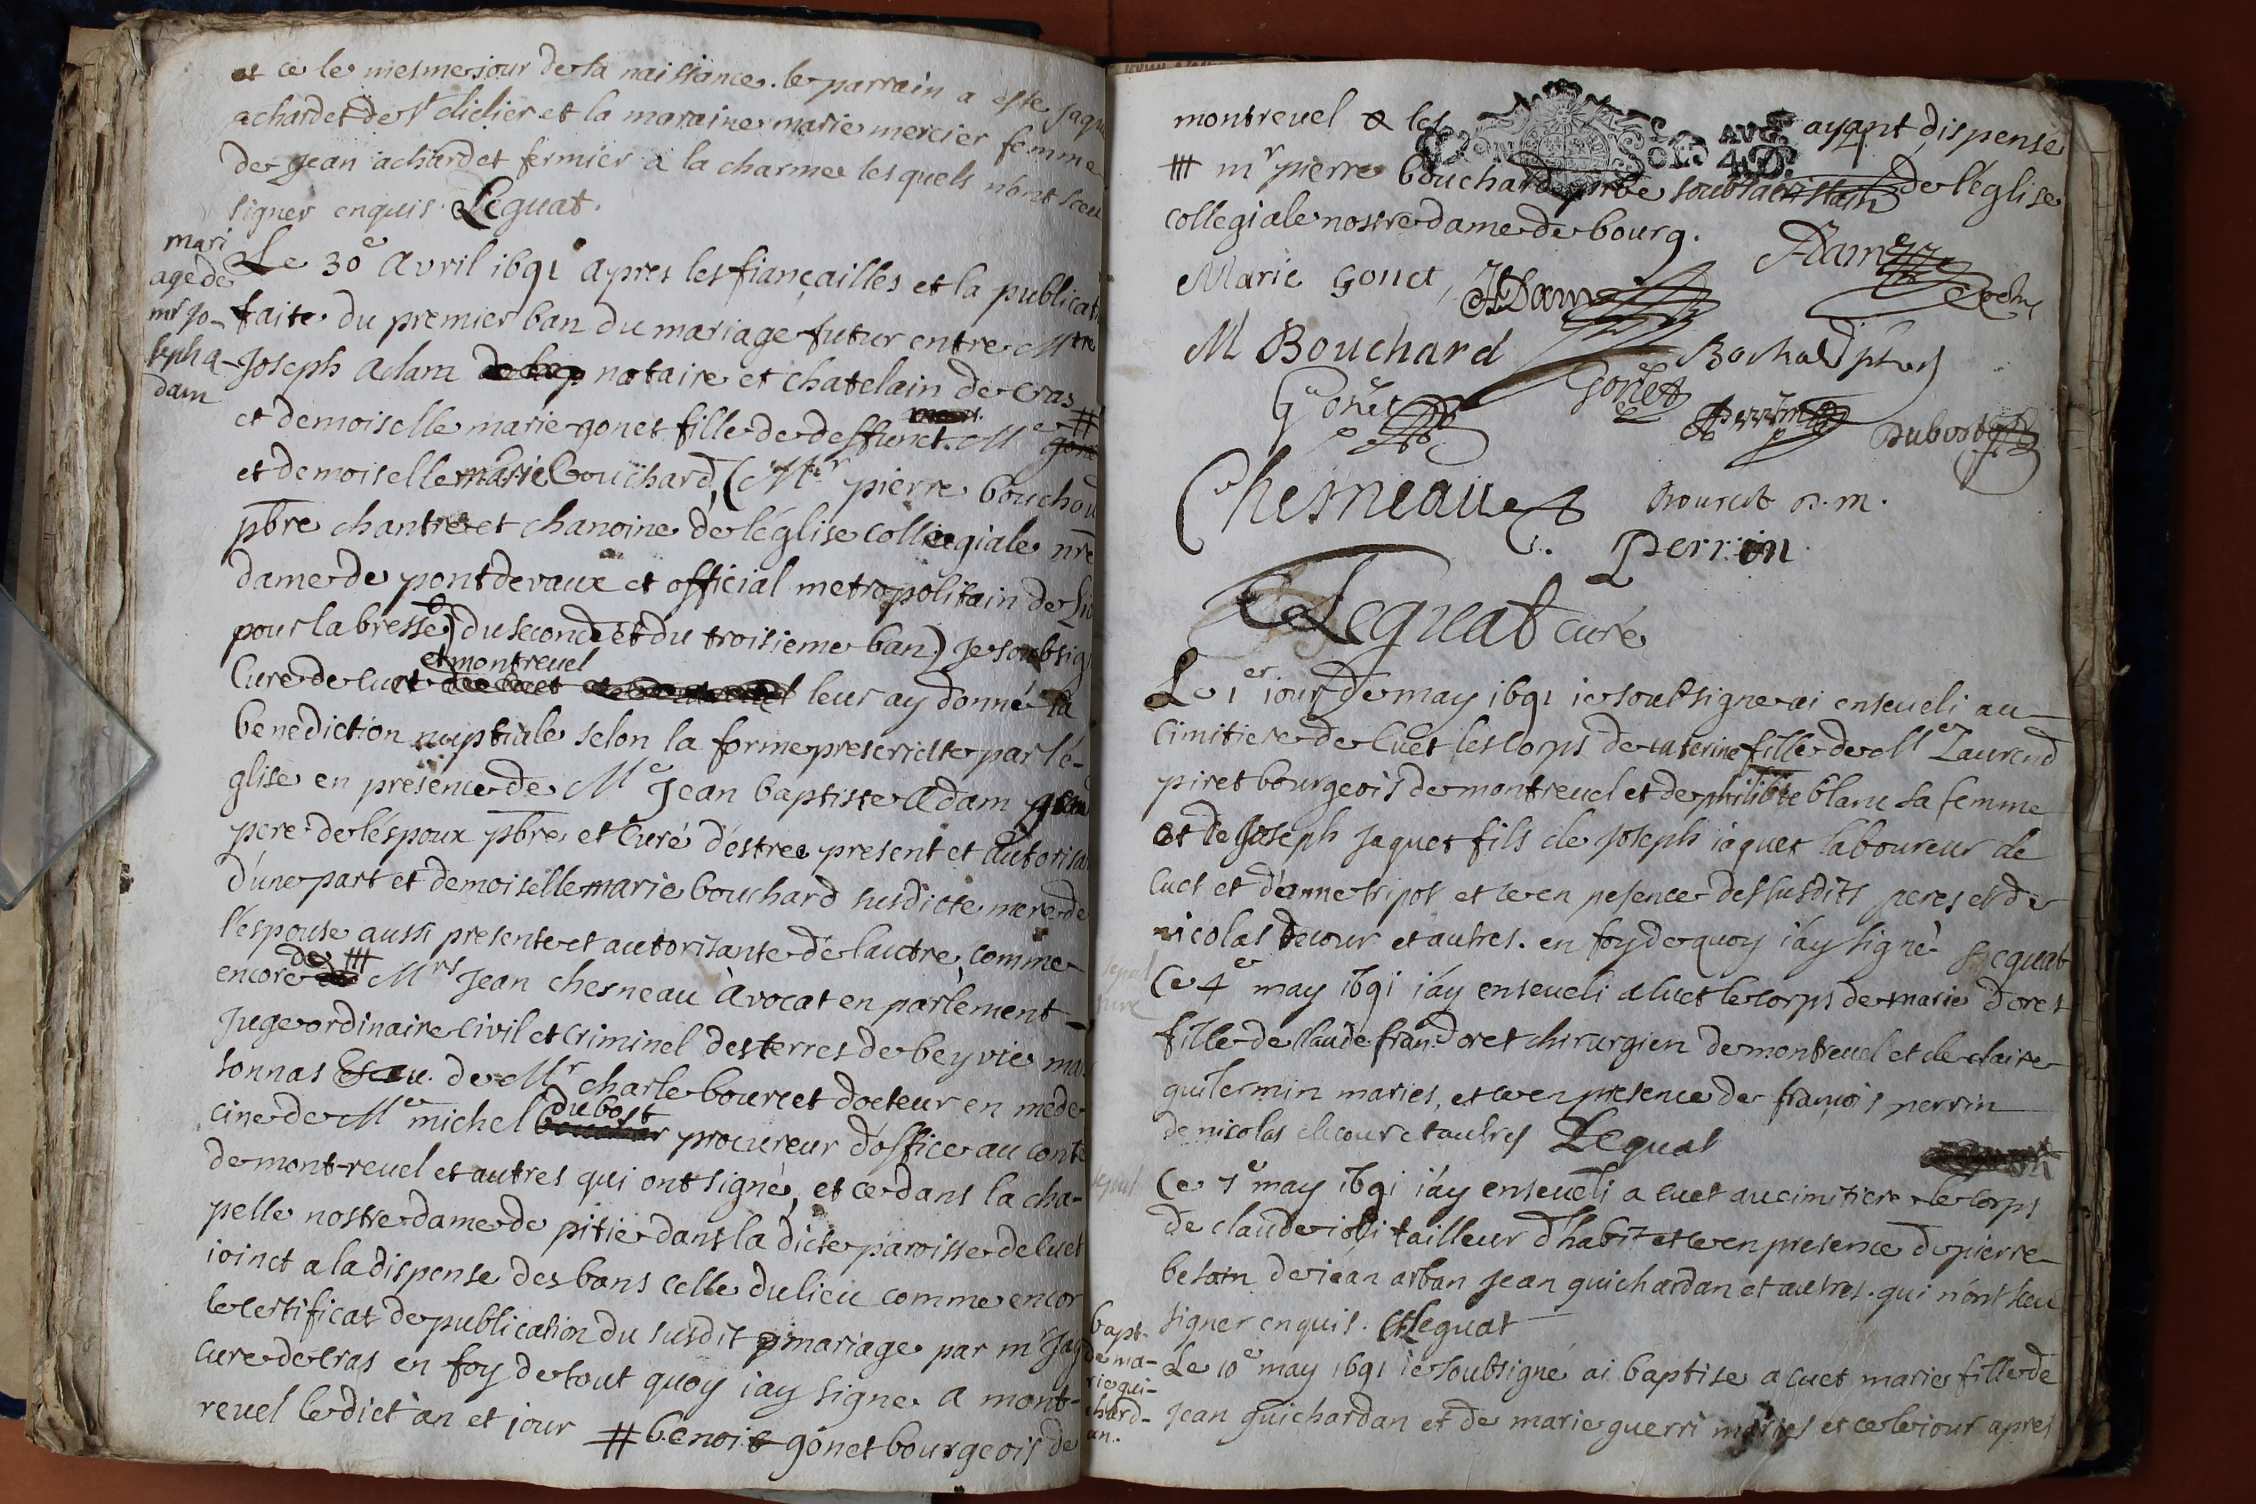 et ce le mesme jour de sa naissance. le parrain a este jaque
achardet de st didier et la maraine marie mercier femme
de jean achardet fermier a la charme lesquels nont sceu
signer enquis. Leguat.
mari
age de
mr jo-
seph a-
dam
Le 30e Avril 1691 apres les fiançailles et la publicati
faite du premier ban du mariage futur entre Mtre
Joseph Adam notaire et chatelain de Cras
et demoiselle marie gonet fille de deffunct Me #
et demoiselle marie Bouchard, (Mr pierre bouchard
pbre chantre et chanoine de l'église collegiale nre
dame de pontdevaux et official metropolitain de Lio
pour la bresse) du second et du troisieme ban) je soubsig
et montrevel
Curé de Cuet leur ay donné la
benediction nuptiale selon la forme prescriste par l'é-
glise en presence de Me Jean baptiste Adam
pere de l'époux pbre et Curé d'éstree present et autorisa
d'une part et demoiselle marie bouchard susdicte mere de
l'espouse aussi presente et autorisante de lautre, comme
encore de # Mrs Jean chesneau Avocat en parlement
Juge ordinaire civil et criminel des terres de beyvie ma
sonnas de Mr charle bourcet docteur en mede
cine de Me michel dubost procureur d'office au conte
de mont-revel et autres qui ont signé, et ce dans la cha-
pelle nostre dame de pitie dans la dicte paroisse de Cuet
ioinct a la dispense des bans celle du lieu comme encor
le certificat de publication du susdit mariage par mr Jaq
cure de Cras en foy de tout quoy iay signe a mont-
revel le dict an et jour # benoit gonet bourgeois de
montrevel & les ayant dispensé
# mr pierre bouchard pbre soubsacristain de l'église
collegiale nostre dame de bourg.
Marie Gonet, JAdam Adam
M Bouchard Bochard pbre
Gonet Gonet Perrin Dubost
Chesneau Bourcet D.M.
Perrin
Leguat curé
Le 1er iour de may 1691 ie soubsigne ai enseveli au
cimitiere de Cuet les corps de caterine fille de Me Laurend
piret bourgeois de montrevel et de philibte blanc sa femme
et de Joseph Jaquet fils de Joseph iaquet laboureur de
Cuet et d'anne tripot et ce en pesence des susdits peres et de
nicolas decour et autres. en foy de quoy i'ay signé Leguat
sepul
ture
Ce 4e may 1691 i'ay enseveli a Cuet le corps de marie doret
fille de Claude fran. doret chirurgien de montrevel et de claire
guilermin mariés, et ce en presence de françois perrin
de nicolas decour et autres Leguat
sepul
Ce 7e may 1691 i'ay enseveli a cuet au cimitiere le corps
de claude ioli tailleur d'habit et ce en presence de pierre
besson de iean arban jean guichardan et autres. qui n'ont sceu
signer enquis. Leguat
bapt-
de ma-
rie gui-
chard-
an..
Le 10e may 1691 ie soubsigné ai baptise a cuet marie fille de
Jean guichardan et de marie guerri mariés et ce le iour apres